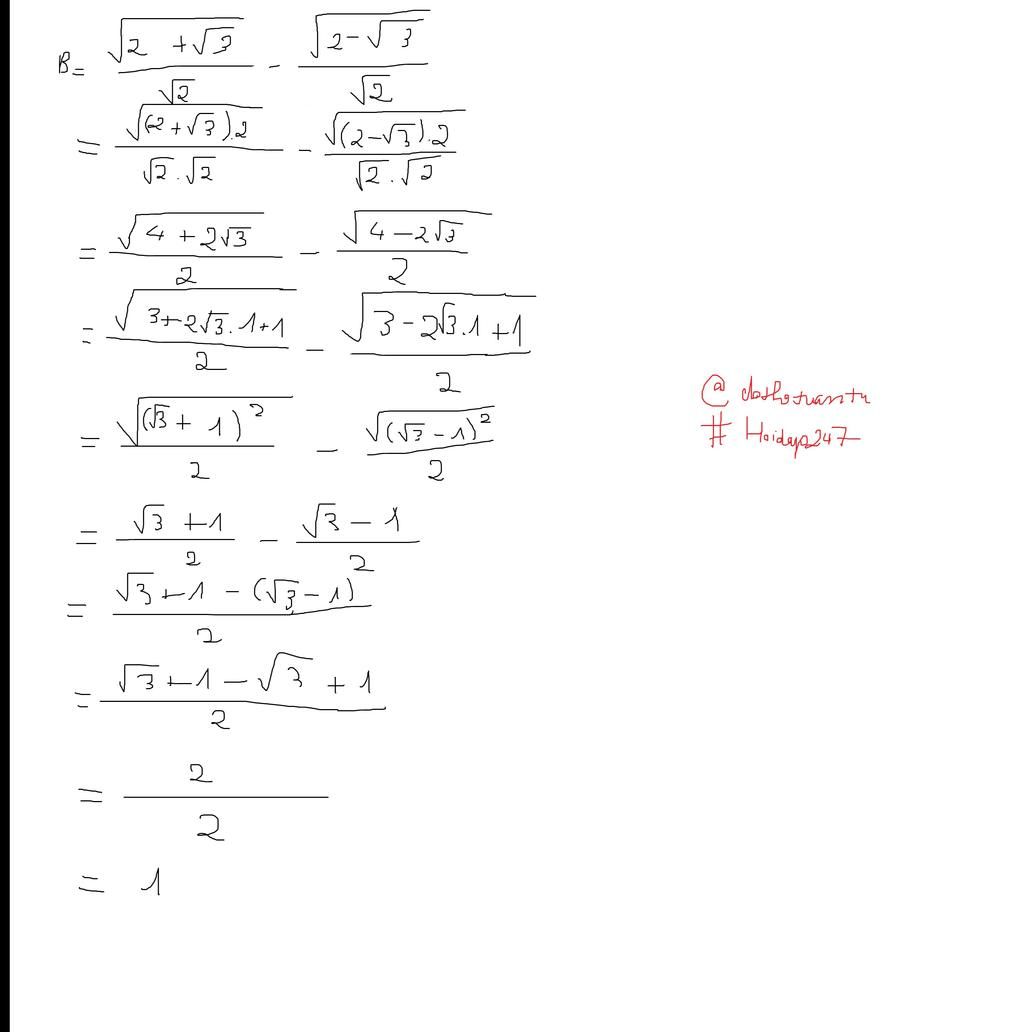 B = \frac{\sqrt{2+\sqrt{3}}}{\sqrt{2}} - \frac{\sqrt{2-\sqrt{3}}}{\sqrt{2}}
= \frac{\sqrt{(2+\sqrt{3}).2}}{\sqrt{2}.\sqrt{2}} - \frac{\sqrt{(2-\sqrt{3}).2}}{\sqrt{2}.\sqrt{2}}
= \frac{\sqrt{4+2\sqrt{3}}}{2} - \frac{\sqrt{4-2\sqrt{3}}}{2}
= \frac{\sqrt{3+2\sqrt{3}.1+1}}{2} - \frac{\sqrt{3-2\sqrt{3}.1+1}}{2}
= \frac{\sqrt{(\sqrt{3}+1)^2}}{2} - \frac{\sqrt{(\sqrt{3}-1)^2}}{2}
= \frac{\sqrt{3}+1}{2} - \frac{\sqrt{3}-1}{2}
= \frac{\sqrt{3}+1-(\sqrt{3}-1)}{2}
= \frac{\sqrt{3}+1-\sqrt{3}+1}{2}
= \frac{2}{2}
= 1
# Hoidap247